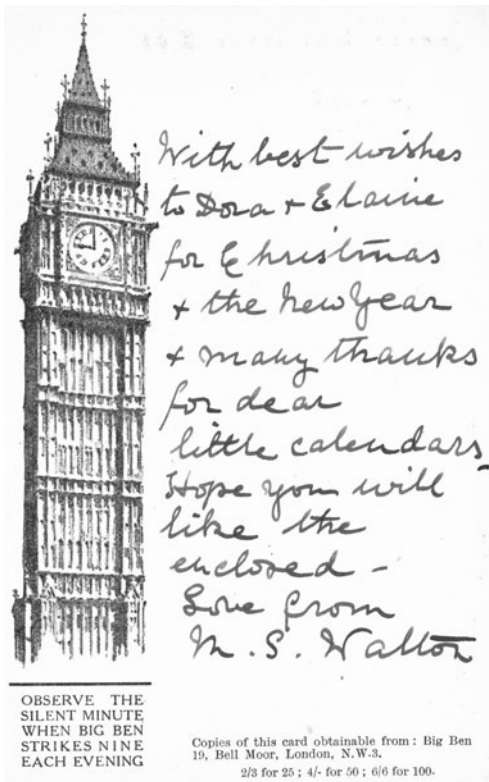 With best wishes
to Dora + Elaine
for Christmas
+ the New Year
+ many thanks
for dear
little calendars
Hope you will
like the
enclosed -
Love from
M. S. Walton
OBSERVE THE
SILENT MINUTE
WHEN BIG BEN
STRIKES NINE
EACH EVENING
Copies of this card obtainable from: Big Ben
19, Bell Moor, London, N.W.3.
2/3 for 25; 4/- for 50; 6/6 for 100.